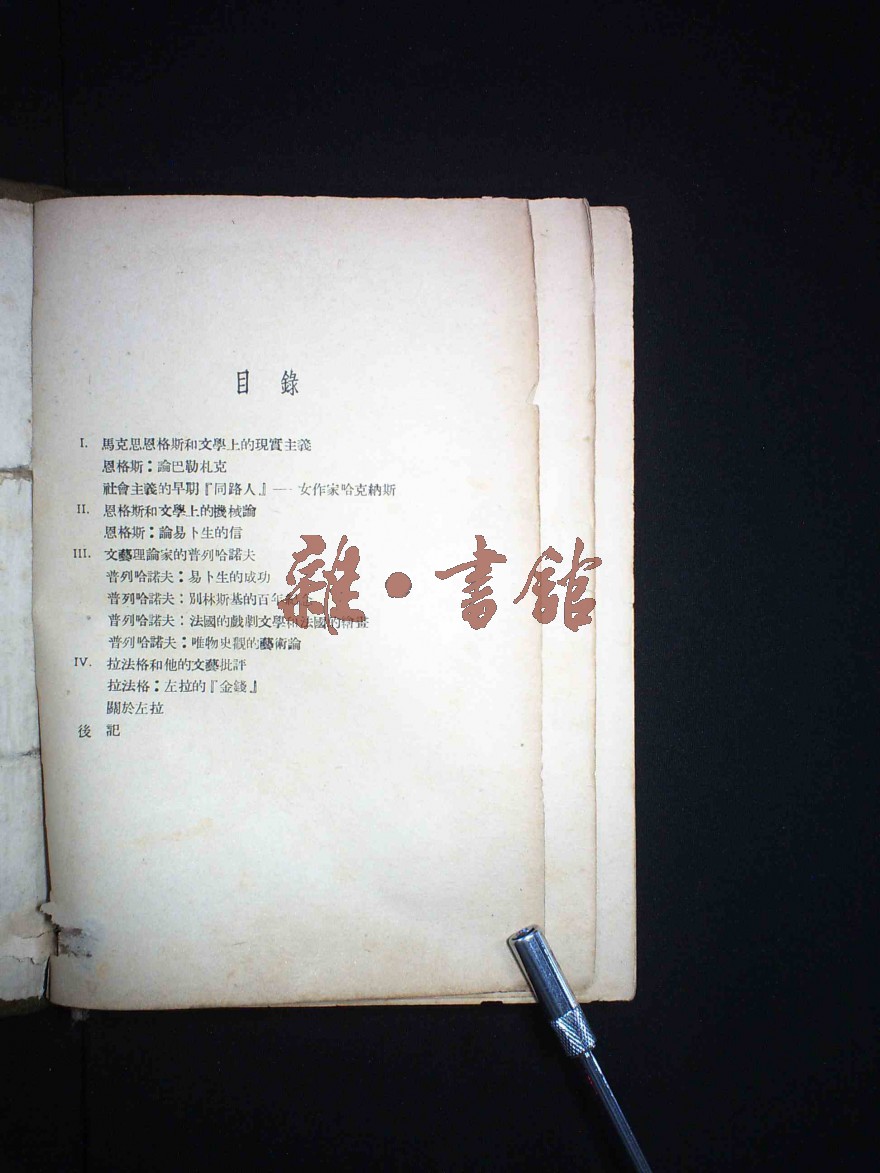 目錄
I. 馬克思恩格斯和文學上的現實主義
恩格斯：論巴勒札克
社會主義的早期『同路人』——女作家哈克納斯
II. 恩格斯和文學上的機械論
恩格斯：論易卜生的信
III. 文藝理論家的普列哈諾夫
普列哈諾夫：易卜生的成功
普列哈諾夫：別林斯基的百年紀念
普列哈諾夫：法國的戲劇文學和法國的繪畫
普列哈諾夫：唯物史觀的藝術論
IV. 拉法格和他的文藝批評
拉法格：左拉的『金錢』
關於左拉
後記
雜·書館